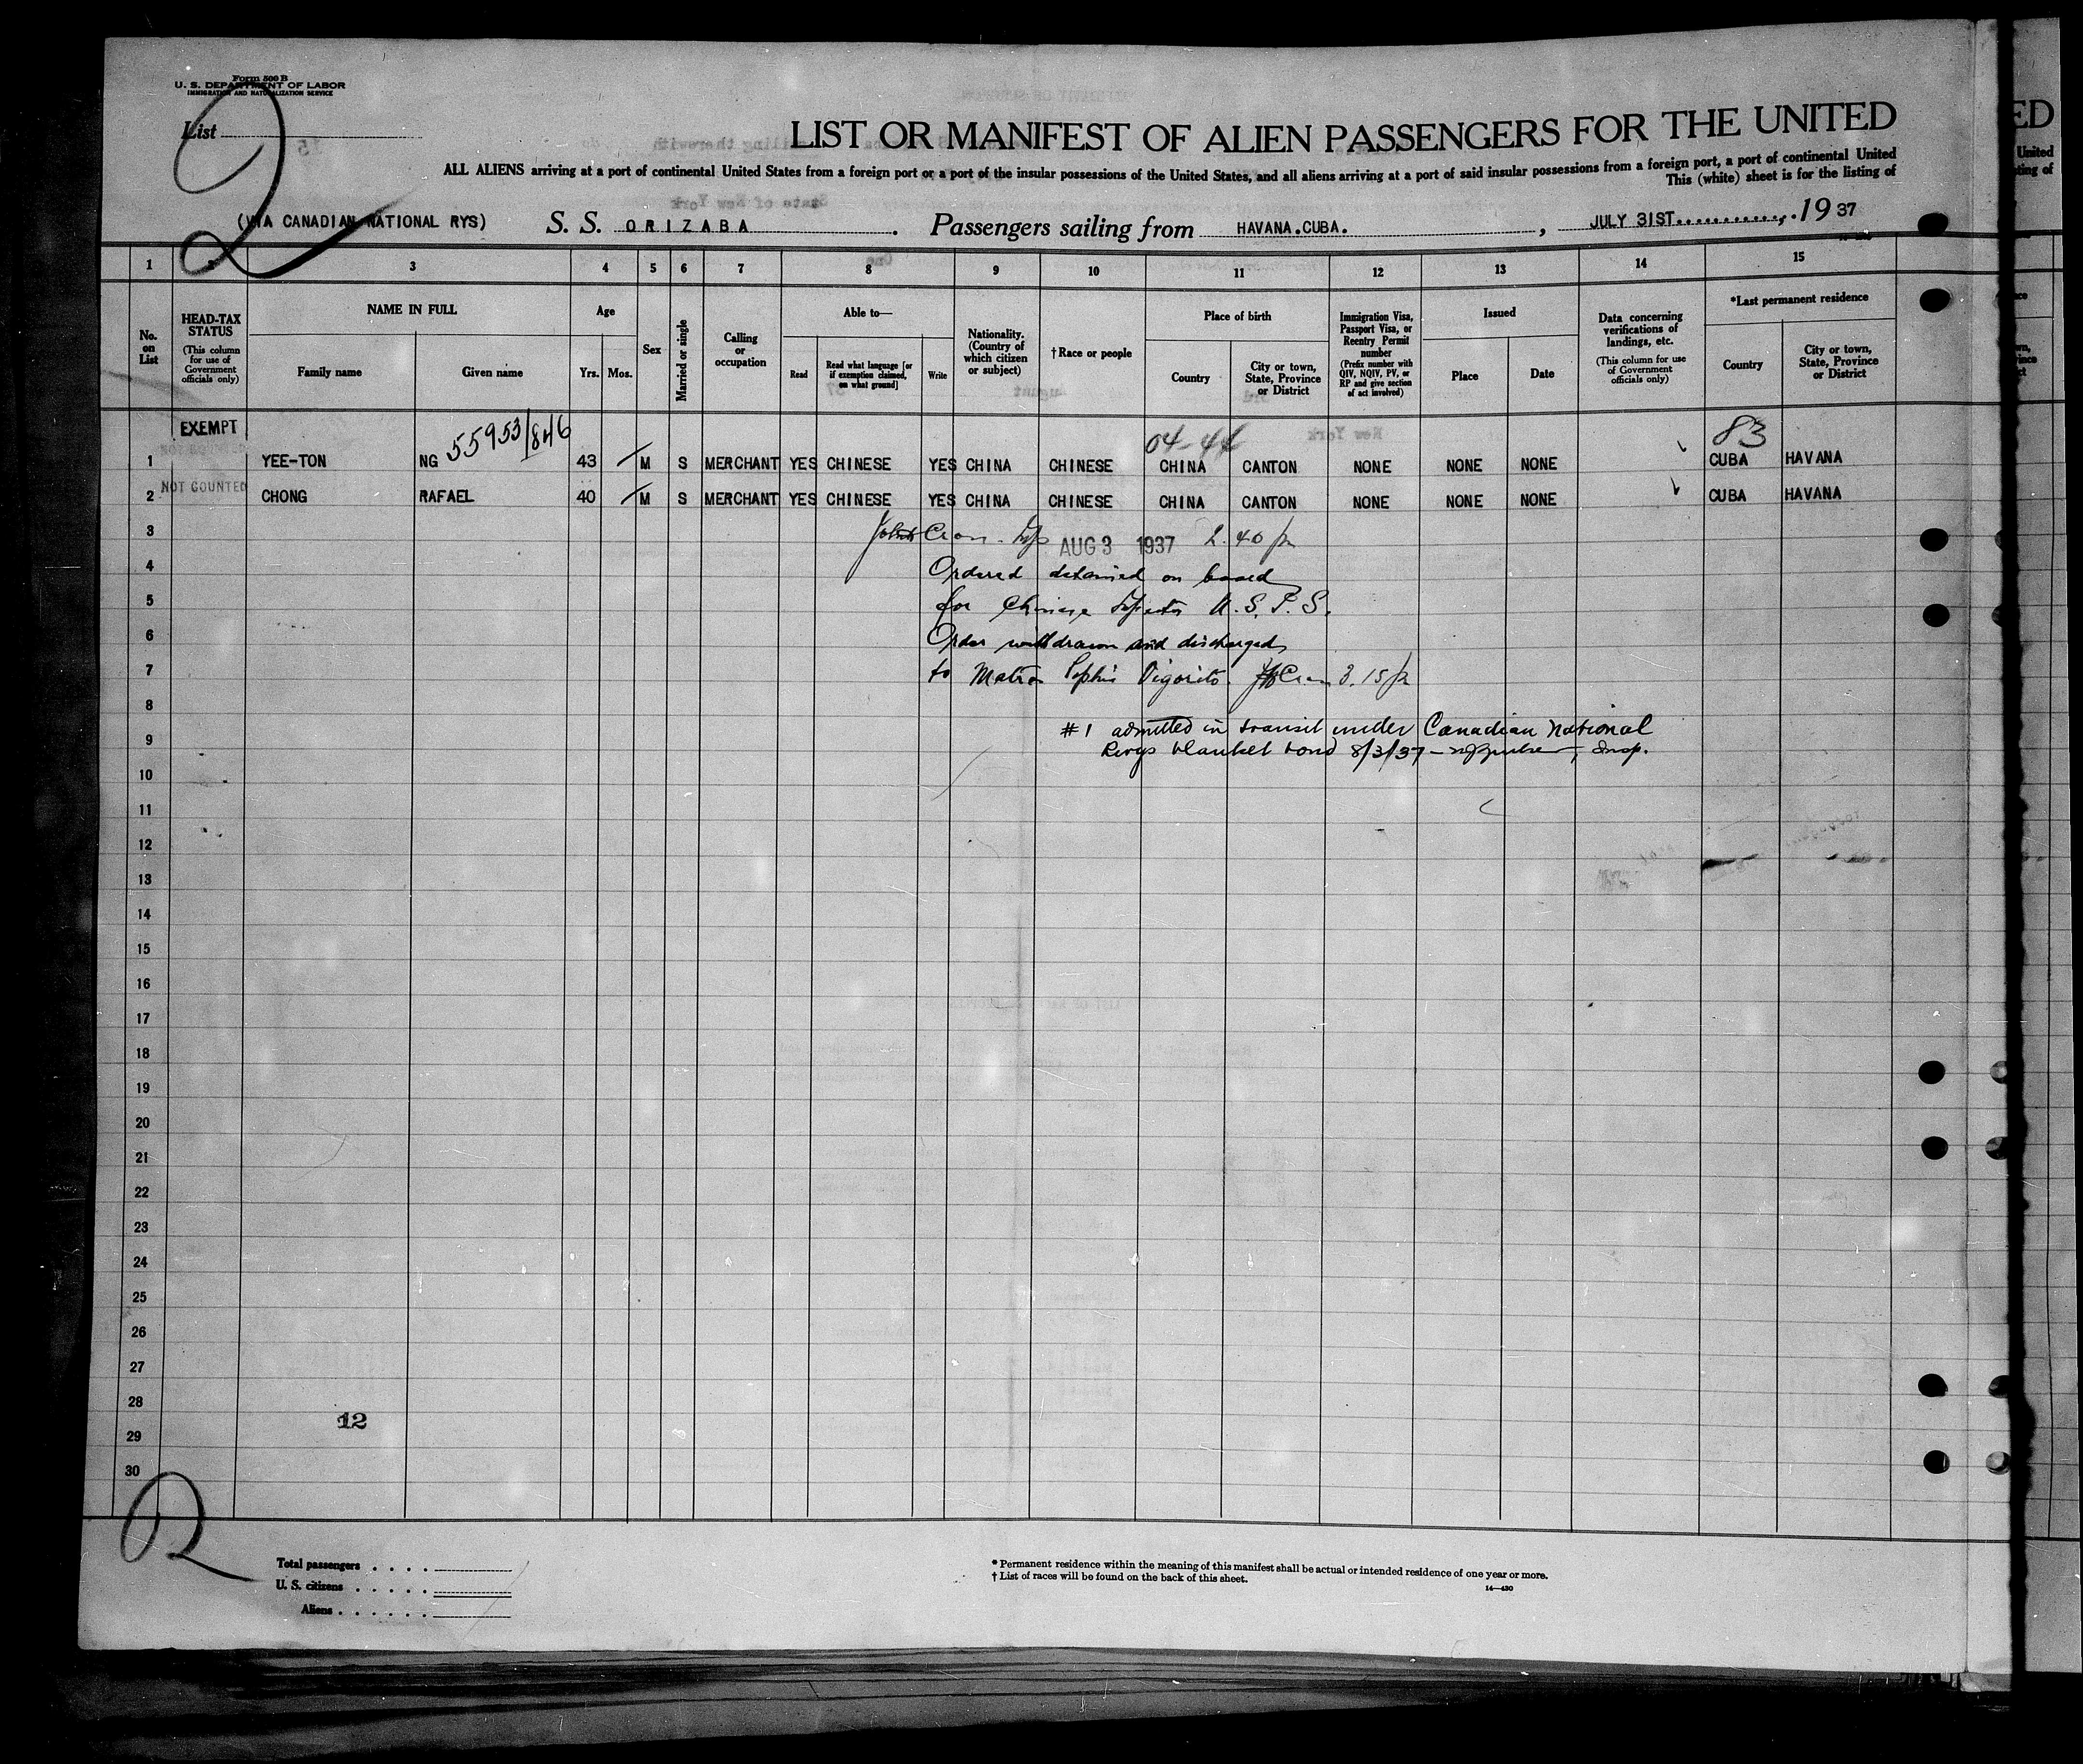 Form 500 B
U. S. DEPARTMENT OF LABOR
IMMIGRATION AND NATURALIZATION SERVICE
List
2
LIST OR MANIFEST OF ALIEN PASSENGERS FOR THE UNITED
ALL ALIENS arriving at a port of continental United States from a foreign port or a port of the insular possessions of the United States, and all aliens arriving at a port of said insular possessions from a foreign port, a port of continental United
This (white) sheet is for the listing of
(VIA CANADIAN NATIONAL RYS) S. S. ORIZABA. Passengers sailing from HAVANA.CUBA., JULY 31ST............, 19 37
1 2 3 4 5 6 7 8 9 10 11 12 13 14 15
No. on List
HEAD-TAX STATUS (This column for use of Government officials only)
NAME IN FULL
Family name Given name
Age
Yrs. Mos.
Sex
Married or single
Calling or occupation
Able to—
Read Read what language [or if exemption claimed, on what ground] Write
Nationality. (Country of which citizen or subject)
†Race or people
Place of birth
Country City or town, State, Province or District
Immigration Visa, Passport Visa, or Reentry Permit number (Prefix number with QIV, NQIV, PV, or RP and give section of act involved)
Issued
Place Date
Data concerning verifications of landings, etc. (This column for use of Government officials only)
*Last permanent residence
Country City or town, State, Province or District
EXEMPT 55953/846 83
1 YEE-TON NG 43 M S MERCHANT YES CHINESE YES CHINA CHINESE CHINA CANTON NONE NONE NONE CUBA HAVANA
NOT COUNTED
2 CHONG RAFAEL 40 M S MERCHANT YES CHINESE YES CHINA CHINESE CHINA CANTON NONE NONE NONE CUBA HAVANA
3 AUG 3 1937 2.40 p
4 Ordered detained on board
5 for Chinese Inspector
6 Order withdrawn and discharged
7 to Matron Sophie Vigorito. 3.15 p
8 #1 admitted in transit under Canadian National
9 Rwys blanket bond 8/3/37 – Insp.
10
11
12
13
14
15
16
17
18
19
20
21
22
23
24
25
26
27
28
12
29
30
2
Total passengers
U. S. citizens
Aliens
* Permanent residence within the meaning of this manifest shall be actual or intended residence of one year or more.
† List of races will be found on the back of this sheet.
14—430